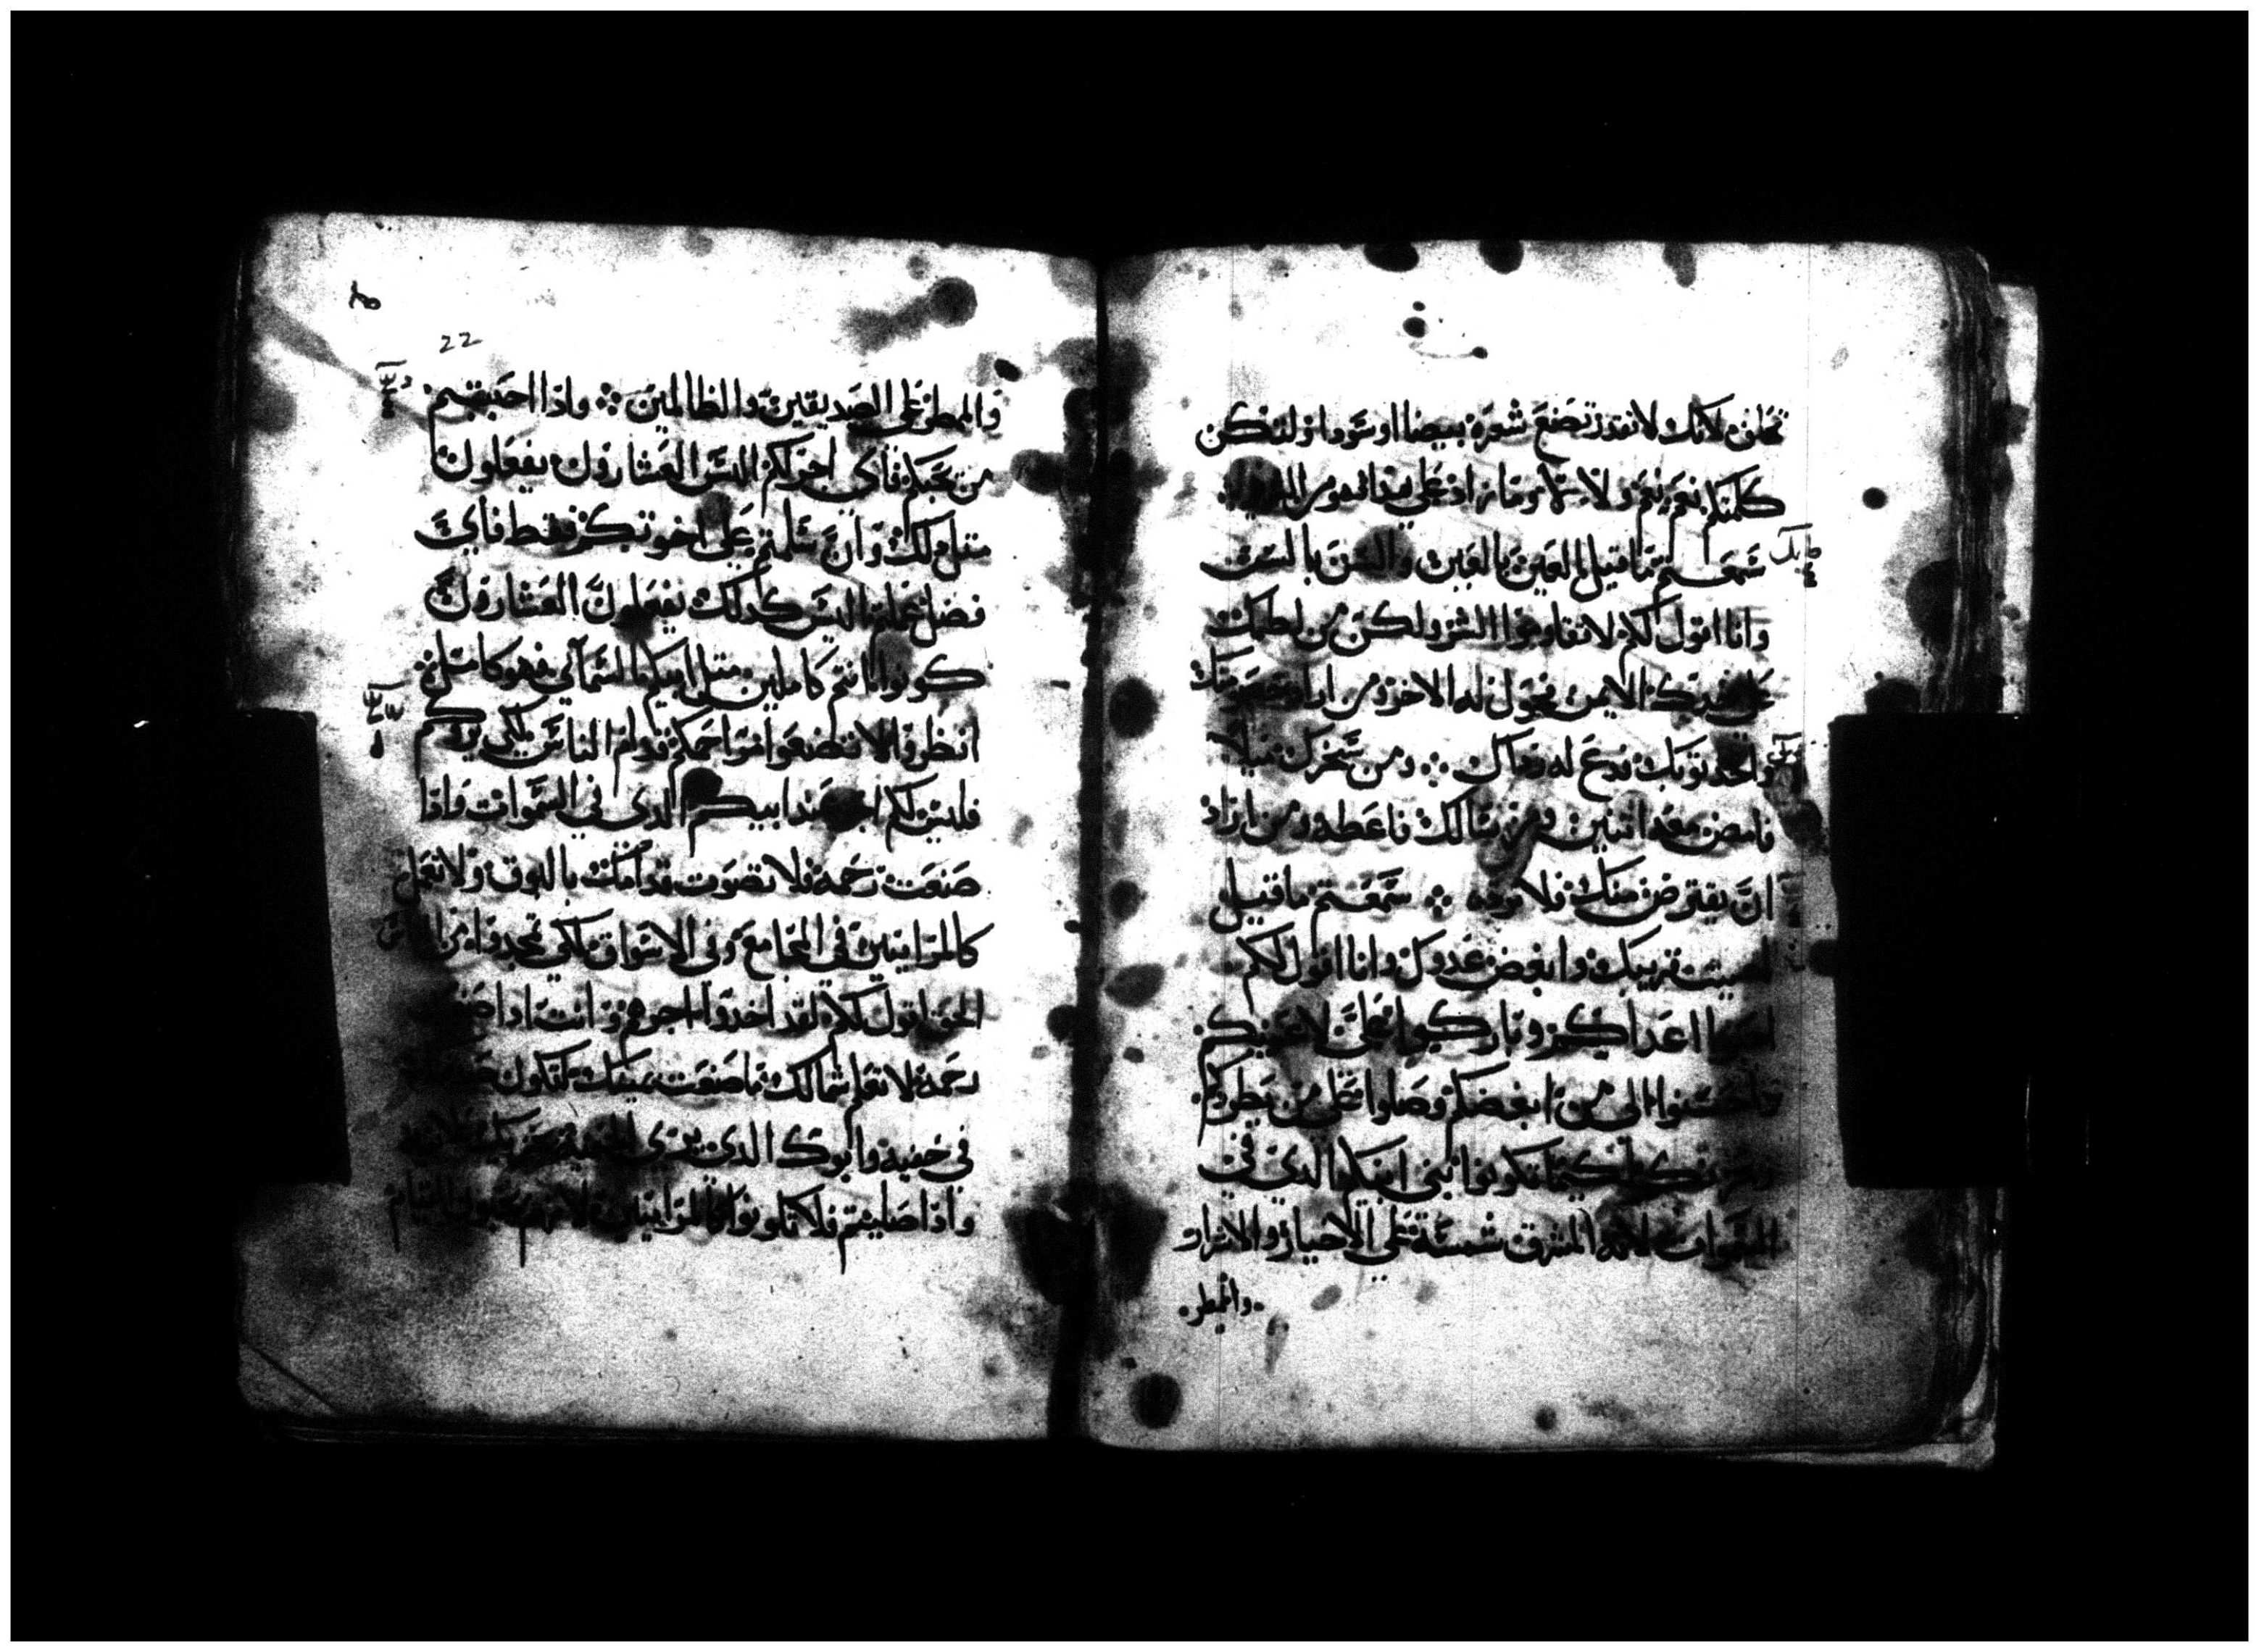 تحلف لانك لا تقدر تصنع شعره بيضا او سودا ولتكن
كلمتكم نعم نعم ولا لا وما زاد على هدا فهو من
سمعتم ما قيل العين بالعين والسن بالسن
وانا اقول لكم لا تقاوموا الشر ولكن من لطمك
على خدك الايمن فحول له الاخر ومن اراد خصومتك
واخد توبك فدع له رداك ومن سخرك ميلا
فامض معه اتنين ومن سالك فاعطه ومن اراد
ان يقترض منك فلا ترده سمعتم ما قيل
احبب قريبك وابغض عدوك وانا اقول لكم
احبوا اعداكم وباركوا على لاعنيكم
واحسنوا الى من ابغضكم وصلوا على من يطردكم
لكيما تكونوا بني ابيكم الدي في
السموات لانه المشرق شمسه على الاخيار والاشرار
والمطر
22
والمطر على الصديقين والظالمين واذا احببتم
من يحبكم فاي اجر لكم اليس العشارون يفعلون
متل دلك وان سلمتم على اخوتكم فقط فاي
فضل عملتم اليس كدلك يفعلون العشارون
كونوا انتم كاملين متل ابيكم السمائي فهو كامل
انظروا لا تصنعوا مراحمكم قدام الناس لكي يروكم
فليس لكم اجر عند ابيكم الدي في السموات واذا
صنعت رحمه فلا تصوت قدامك بالبوق ولا تعمل
كالمرايين في المجامع وفي الاسواق لكي يمجدوا من الناس
الحق اقول لكم لقد اخدوا اجرهم وانت ادا صنعت
رحمه لا تعلم شمالك ما صنعت يمينك لتكون
في خفيه وابوك الدي يرى الخفيه يجزيك علانيه
واذا صليتم فلا تكونوا كالمرايين لانهم يحبون القيام